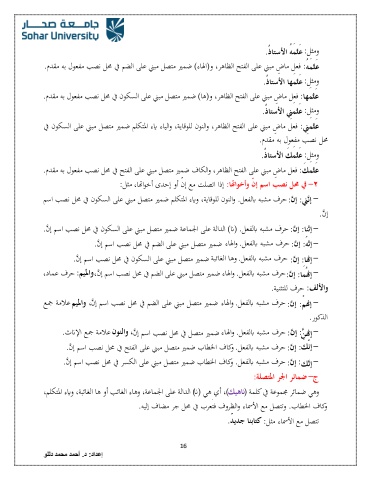 جامعة صحار
Sohar University
ومثل: عَلمَهُ الأستاذُ.
عَلمَهُ: فعل ماضٍ مبني على الفتح الظاهر، و(الهاء) ضمير متصل مبني على الضم في محل نصب مفعول به مقدم.
ومثل: عَلمَها الأستاذُ.
عَلمَها: فعل ماضٍ مبني على الفتح الظاهر، و(ها) ضمير متصل مبني على السكون في محل نصب مفعول به مقدم.
ومثل: عَلمَني الأستاذُ.
علمَني: فعل ماضٍ مبني على الفتح الظاهر، والنون للوقاية، والياء ياء المتكلم ضمير متصل مبني على السكون في
محل نصب مفعول به مقدم.
ومثل: عَلمَكَ الأستاذُ.
علمَكَ: فعل ماضٍ مبني على الفتح الظاهر، والكاف ضمير متصل مبني على الفتح في محل نصب مفعول به مقدم.
٢- في محل نصب اسم إنّ وأخواتها: إذا اتصلت مع إنّ أو إحدى أخواتها، مثل:
– إنّني: إنّ: حرف مشبه بالفعل. والنون للوقاية، وياء المتكلم ضمير متصل مبني على السكون في محل نصب اسم
إنَّ.
– إنّنا: إنّ: حرف مشبه بالفعل. (نا) الدالة على الجماعة ضمير متصل مبني على السكون في محل نصب اسم إنّ.
– إنّه: إنّ: حرف مشبه بالفعل. والهاء ضمير متصل مبني على الضم في محل نصب اسم إنّ.
– إنّها: إنّ: حرف مشبه بالفعل. وها الغائبة ضمير متصل مبني على السكون في محل نصب اسم إنّ.
– إنّهُما: إنّ: حرف مشبه بالفعل. والهاء ضمير متصل مبني على الضم في محل نصب اسم إنّ، والميم: حرف عماد،
والألف: حرف للتثنية.
– إنّهم: إنّ: حرف مشبه بالفعل. والهاء ضمير متصل مبني على الضم في محل نصب اسم إنّ، والميم علامة جمع
الذكور.
– إنّهنّ: إنّ: حرف مشبه بالفعل. والهاء ضمير متصل في محل نصب اسم إنّ، والنون علامة جمع الإناث.
– إنّكَ: إنّ: حرف مشبه بالفعل. وكاف الخطاب ضمير متصل مبني على الفتح في محل نصب اسم إنّ.
– إنّكِ: إنّ: حرف مشبه بالفعل. وكاف الخطاب ضمير متصل مبني على الكسر في محل نصب اسم إنّ.
ج- ضمائر الجر المتصلة:
وهي ضمائر مجموعة في كلمة (ناهيك)، أي هي (نا) الدالة على الجماعة، وهاء الغائب أو ها الغائبة، وياء المتكلم،
وكاف الخطاب. وتتصل مع الأسماء والظروف فتعرب في محل جر مضاف إليه.
تتصل مع الأسماء مثل: كتابنا جديدٌ.
16
إعداد: د. أحمد محمد دللو